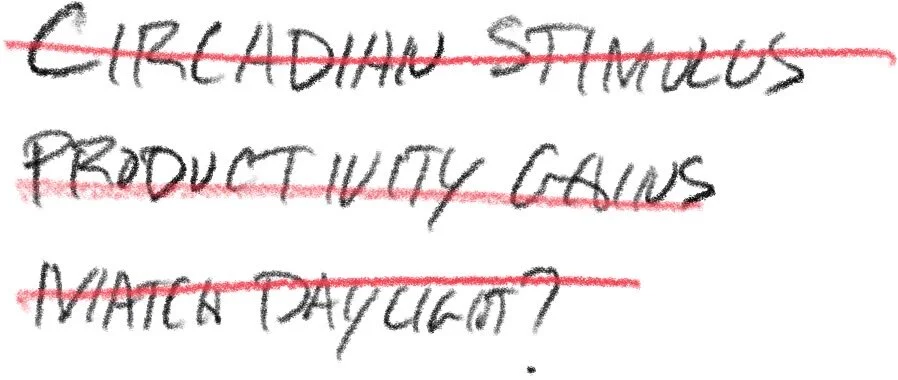 CIRCADIAN STIMULUS
PRODUCTIVITY GAINS
MATCH DAYLIGHT?